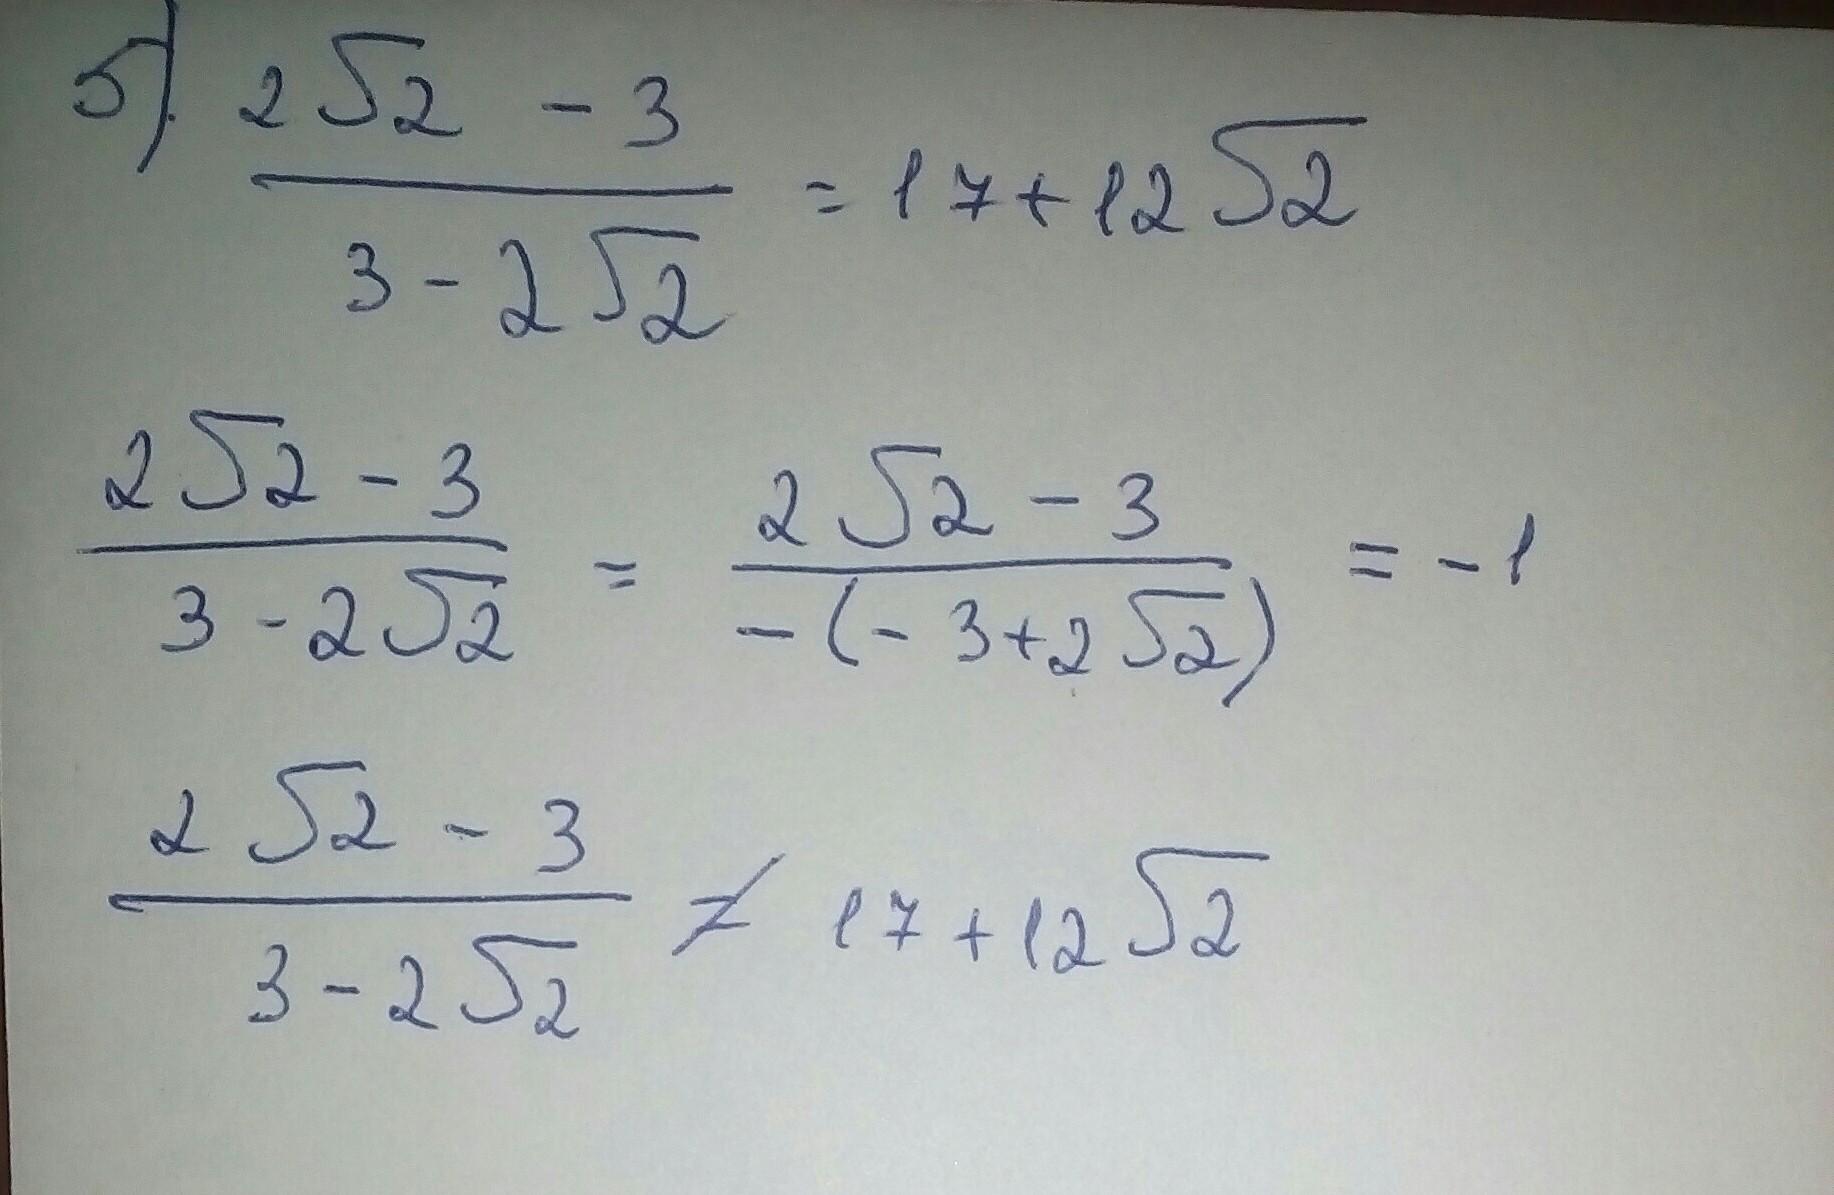 5). (2√2 - 3)/(3 - 2√2) = 17+12√2
(2√2 - 3)/(3 - 2√2) = (2√2 - 3)/(-(-3+2√2)) = -1
(2√2 - 3)/(3 - 2√2) ≠ 17+12√2